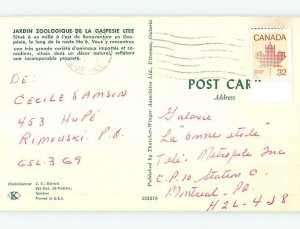 JARDIN ZOOLOGIQUE DE LA GASPESIE LTEE
Situé à un mille à l'est de Bonaventure en Gas-
pésie, le long de la route No 6. Vous y rencontrez
une très grande variété d'animaux importés et ca-
nadiens, situés dans un décor incomparable de la
nature.
DE:
CECILE SAMSON
453 HUPÉ
RIMOUSKI P.Q
G5L-3G9
Distributeur J. C. Hénard
Québec
Printed in U.S.A.
Published by Thatcher-Wagar Associates Ltd., Ottawa, Ontario
224378
CANADA
32
POST CARD
Address
Galaxie
La "bonne étoile"
Télé-Métropole Inc
C.P. 10 Station C
Montréal PQ
H2L-4J8